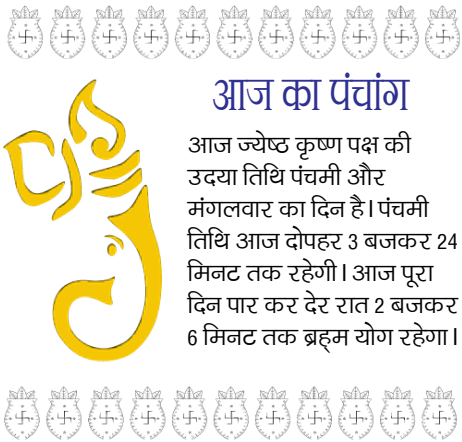 आज का पंचांग
आज ज्येष्ठ कृष्ण पक्ष की
उदया तिथि पंचमी और
मंगलवार का दिन है। पंचमी
तिथि आज दोपहर 3 बजकर 24
मिनट तक रहेगी। आज पूरा
दिन पार कर देर रात 2 बजकर
6 मिनट तक ब्रह्म योग रहेगा।